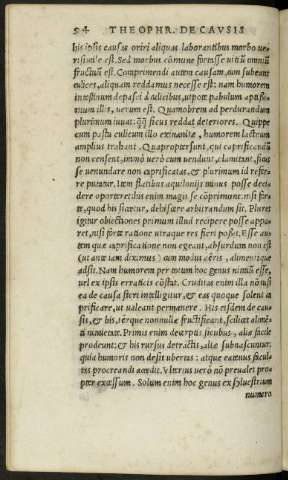 54 THEOPHR. DE CAVSIS
his ipsis causis oriri aliquas laborantibus morbo ve-
risimile est. Sed morbus cõmune foretisse vitiũ omniũ
fructuũ est. Comprimendi autem causam, cum subeant
culices, aliquam reddamus necesse est: nam humorem
intestinum depasci à culicibus, utpote pabulum
illum, verum est. Quamobrem ad perdurandum
plurimùm iuuat: ficus reddat deteriores. Quippe
cum pastu culicum illo exinanita, humorem lacteum
amplius trahant. Quapropter sunt, qui caprificandũ
non censent, immò verò cum vendunt, clamitent, ficus
se venundare non caprificatas, & plurimum id refer-
re putent. Item flatibus aquilonijs minus posse deci-
dere oportere: his enim magis se cõprimunt, nisi for-
te, quod his siccetur, dehiscere arbitrandum sit. Plures
igitur obiectiones primum illud recipere posse appa-
ret, nisi fortè ratione utraque res fieri posset. Esse au-
tem quæ caprificatione non egeant, absurdum non est
(ut ante iam diximus) cum modus cõris, alimentique
adsit. Nam humorem per totum hoc genus nimiũ esse,
vel ex ipsis erraticis cõstat. Cruditas enim illa nõ nisi
ea de causa fieri intelligitur, & eas quoque solent ca
prificare, ut valeant permanere. His eisdem de cau-
sis, & bis, térque nonnullæ fructificant, scilicet alimẽ-
ti immitente. Primis enim decerptis ficubus, aliæ facilè
prodeunt: & his rursus detractis, aliæ subnascuntur:
quia humoris non desit ubertas: atque eatenus facul-
tas procreandi accedit. Vlterius verò nõ prevalet pro-
pter excessum. Solum enim hoc genus ex syluestrium
numero